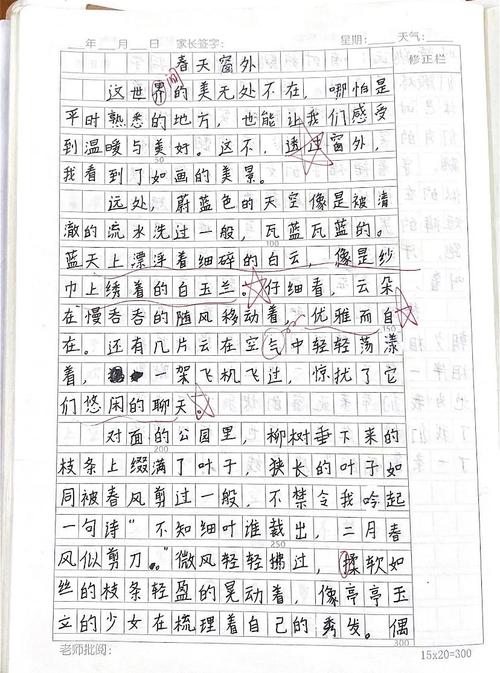 年 月 日 家长签字： 星期： 天气：
修正栏
春天窗外
这世界的美无处不在，哪怕是
间
平时熟悉的地方，也能让我们感受
到温暖与美好。这不，透过窗外，
50
我看到了如画的美景。
远处，蔚蓝色的天空像是被清
澈的流水洗过一般，瓦蓝瓦蓝的。
100
蓝天上漂浮着细碎的白云，像是纱
巾上绣着的白玉兰。仔细看，云朵
在慢吞吞的随风移动着，优雅而自
150
在。还有几片云在空气中轻轻荡漾
着，一架飞机飞过，惊扰了它
们悠闲的聊天。
对面的公园里，柳树垂下来的
200
枝条上缀满了叶子，狭长的叶子如
同被春风剪过一般，不禁令我吟起
一句诗“不知细叶谁裁出，二月春
250
风似剪刀。”微风轻轻拂过，揉软如
丝的枝条轻盈的晃动着，像亭亭玉
立的少女在梳理着自己的秀发。偶
老师批阅：
15x20=300